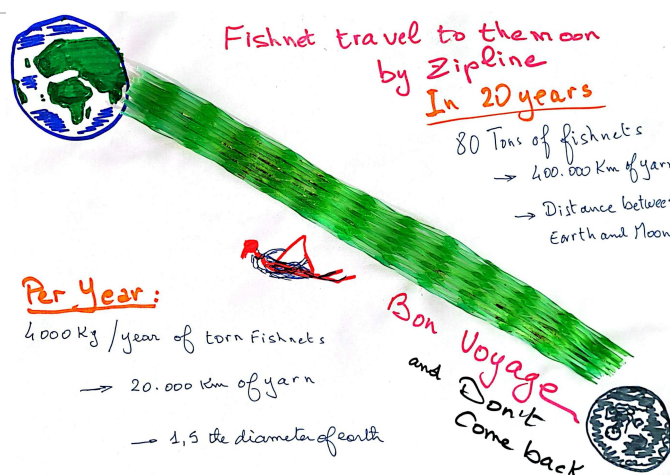 Fishnet travel to the moon
by Zipline
In 20 years
80 Tons of fishnets
→ 400.000 Km of yarn
→ Distance between
Earth and Moon
Per Year:
4000 Kg / year of torn Fishnets
→ 20.000 Km of yarn
→ 1,5 the diameter of earth
Bon Voyage
and Don't
Come back